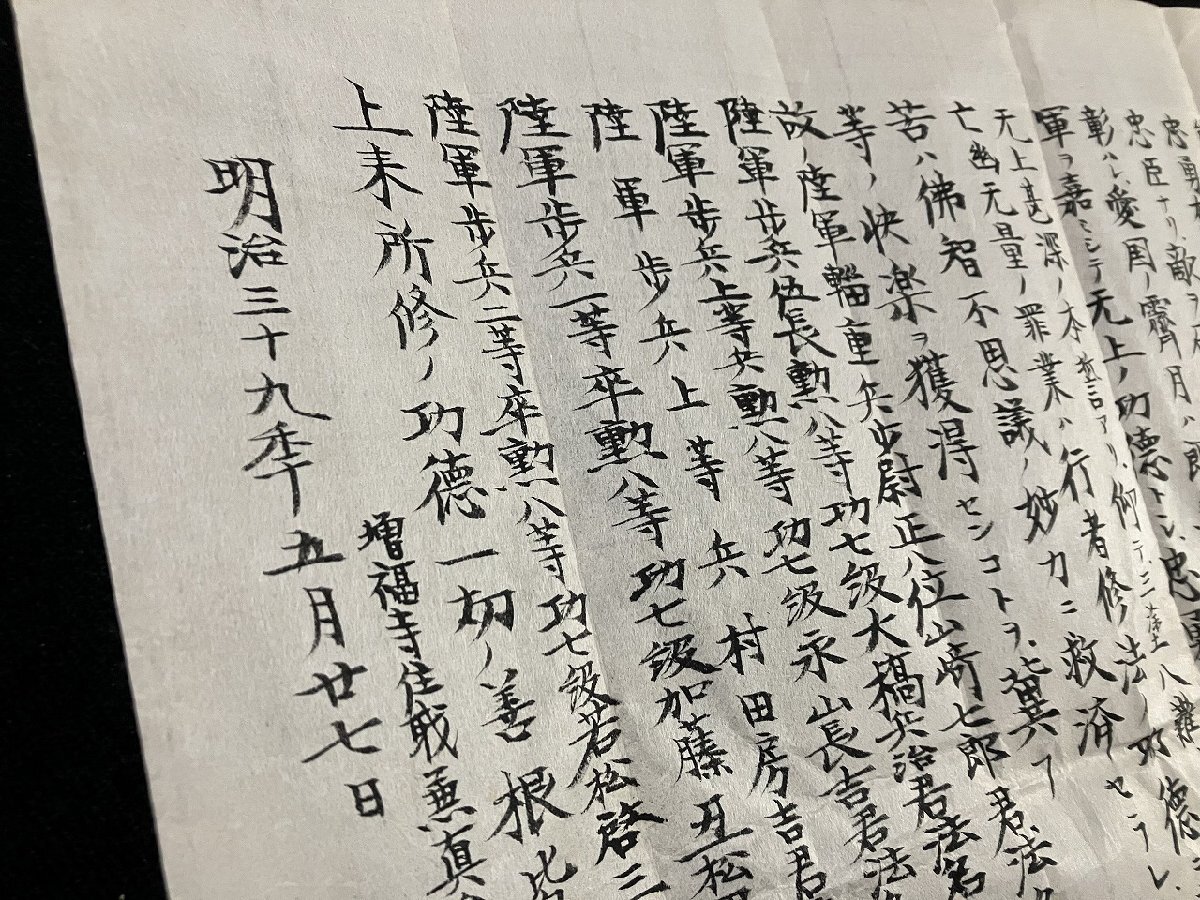 忠臣ナリ敵ヲ
彰ハレ愛国ノ霽月ハ
軍ヲ嘉ミシテ无上ノ功德トシ忠
无上甚深ノ本誓アリ何テ三塗八難
亡幽无量ノ罪業ハ行者修法ノ功德
苦ハ佛智不思議ノ妙力ニ救済セラレ
等ノ快楽ヲ獲得センコトヲ冀フ
故ノ陸軍輜重兵歩尉正八位山崎七郎君法
陸軍歩兵伍長勲八等功七級大槁兵治君法名
陸軍歩兵上等兵勲八等功七級永山長吉君法
陸軍歩兵上等兵村田房吉君
陸軍歩兵一等卒勲八等功七級加藤丑松
陸軍歩兵二等卒勲八等功七級若松啓三
上来所修ノ功德一切ノ善根皆
増福寺住職兼真
明治三十九季五月廿七日